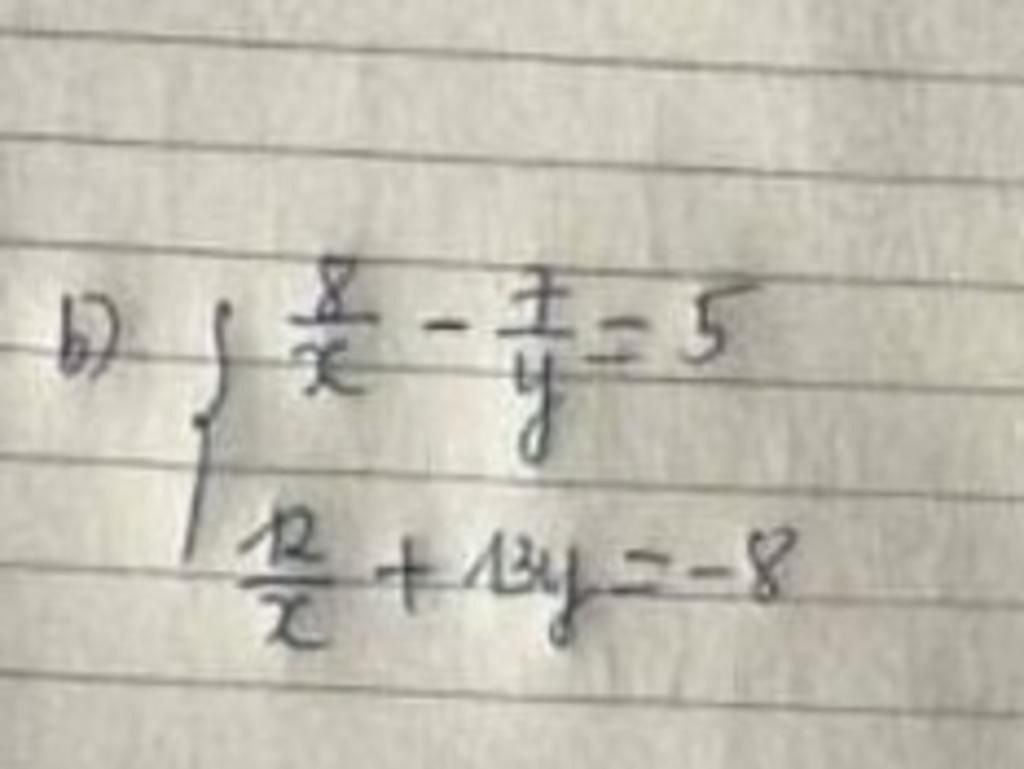 b) { 8/x - 7/y = 5
12/x + 13y = -8